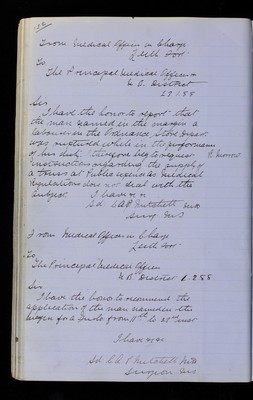 From Medical Officer in Charge
Leith Fort
To
The Principal Medical Officer
N.B. District
29.1.88
Sir
I have the honor to report that
the man named in the margin a
labourer in the Ordnance Store Depart.
was ruptured while in the performance
of his duty. I therefore beg to request
instructions regarding the supply of
a truss at Public expense as Medical
regulations does not deal with the
subject. I have &c &c
Sd. C A P Mitchell MB
Surg MS
From Medical Officer in Charge
Leith Fort
To
The Principal Medical Officer
N.B. District 2.88
Sir
I have the honor to recommend the
application of the man named in the
margin for a from 11th to 25th inst
I have &c &c
Sd. C A P Mitchell MB
Surgeon MS